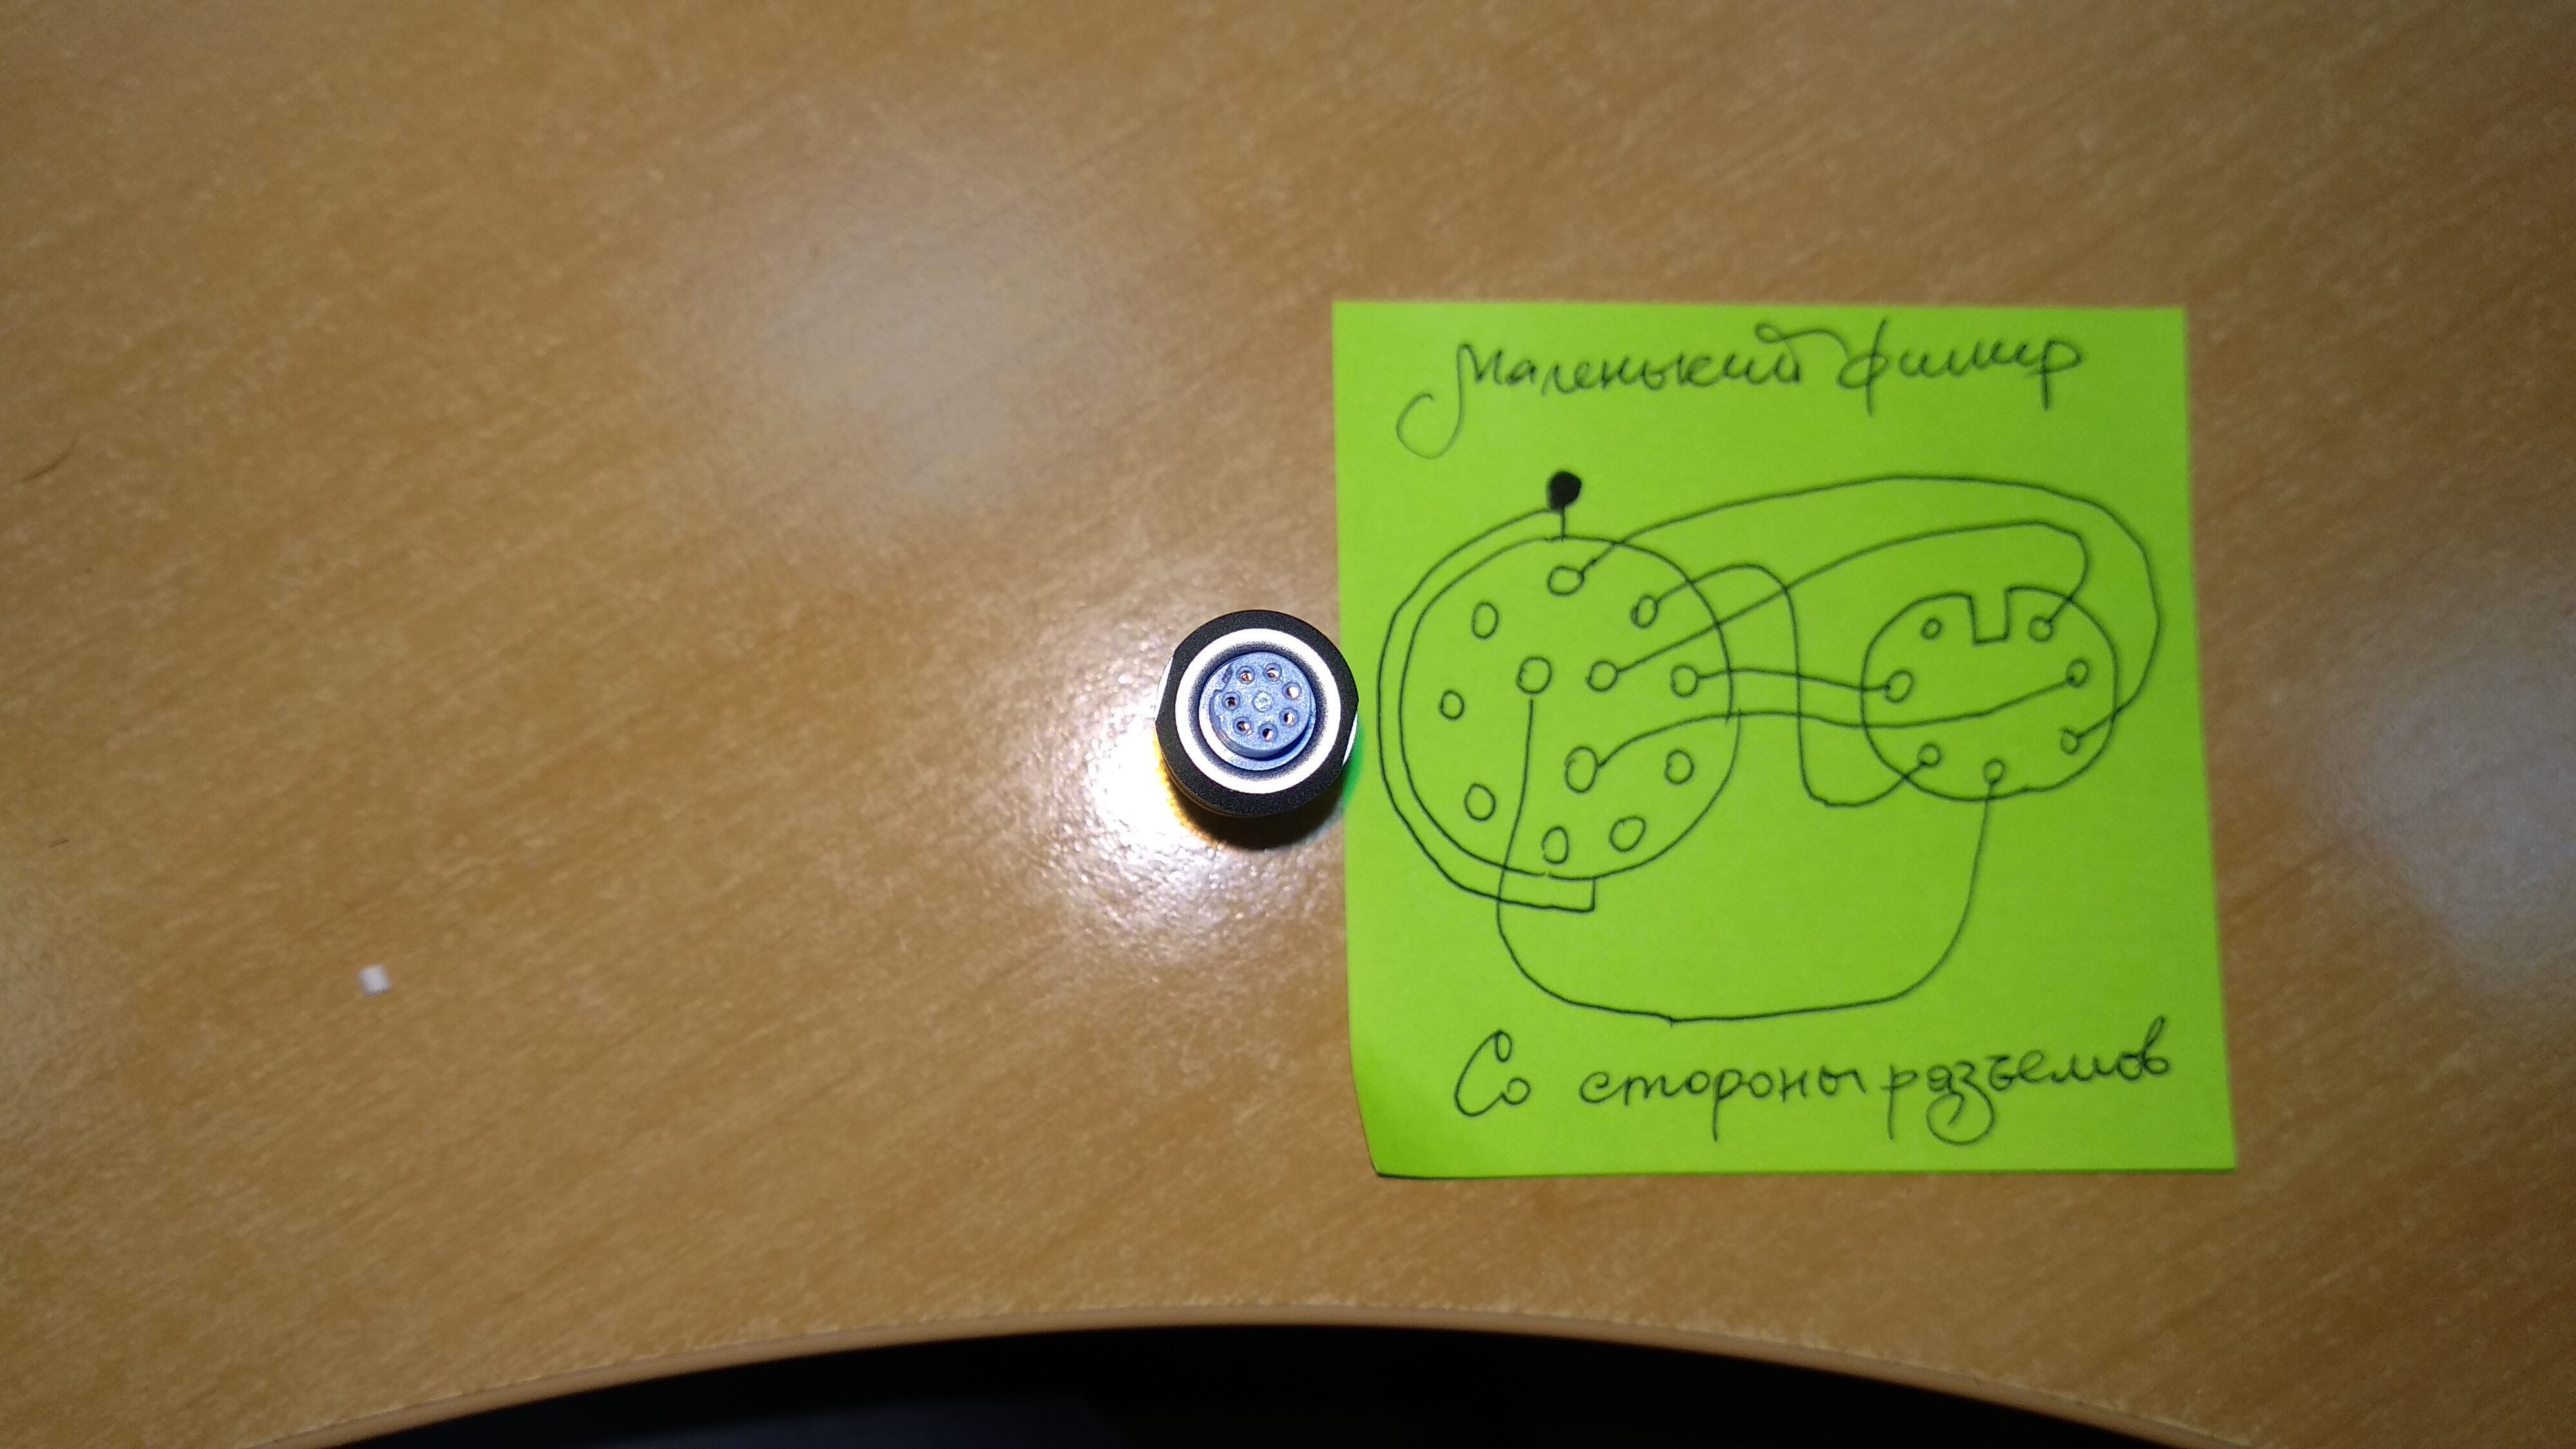 Маленький фильтр
Со стороны разъемов